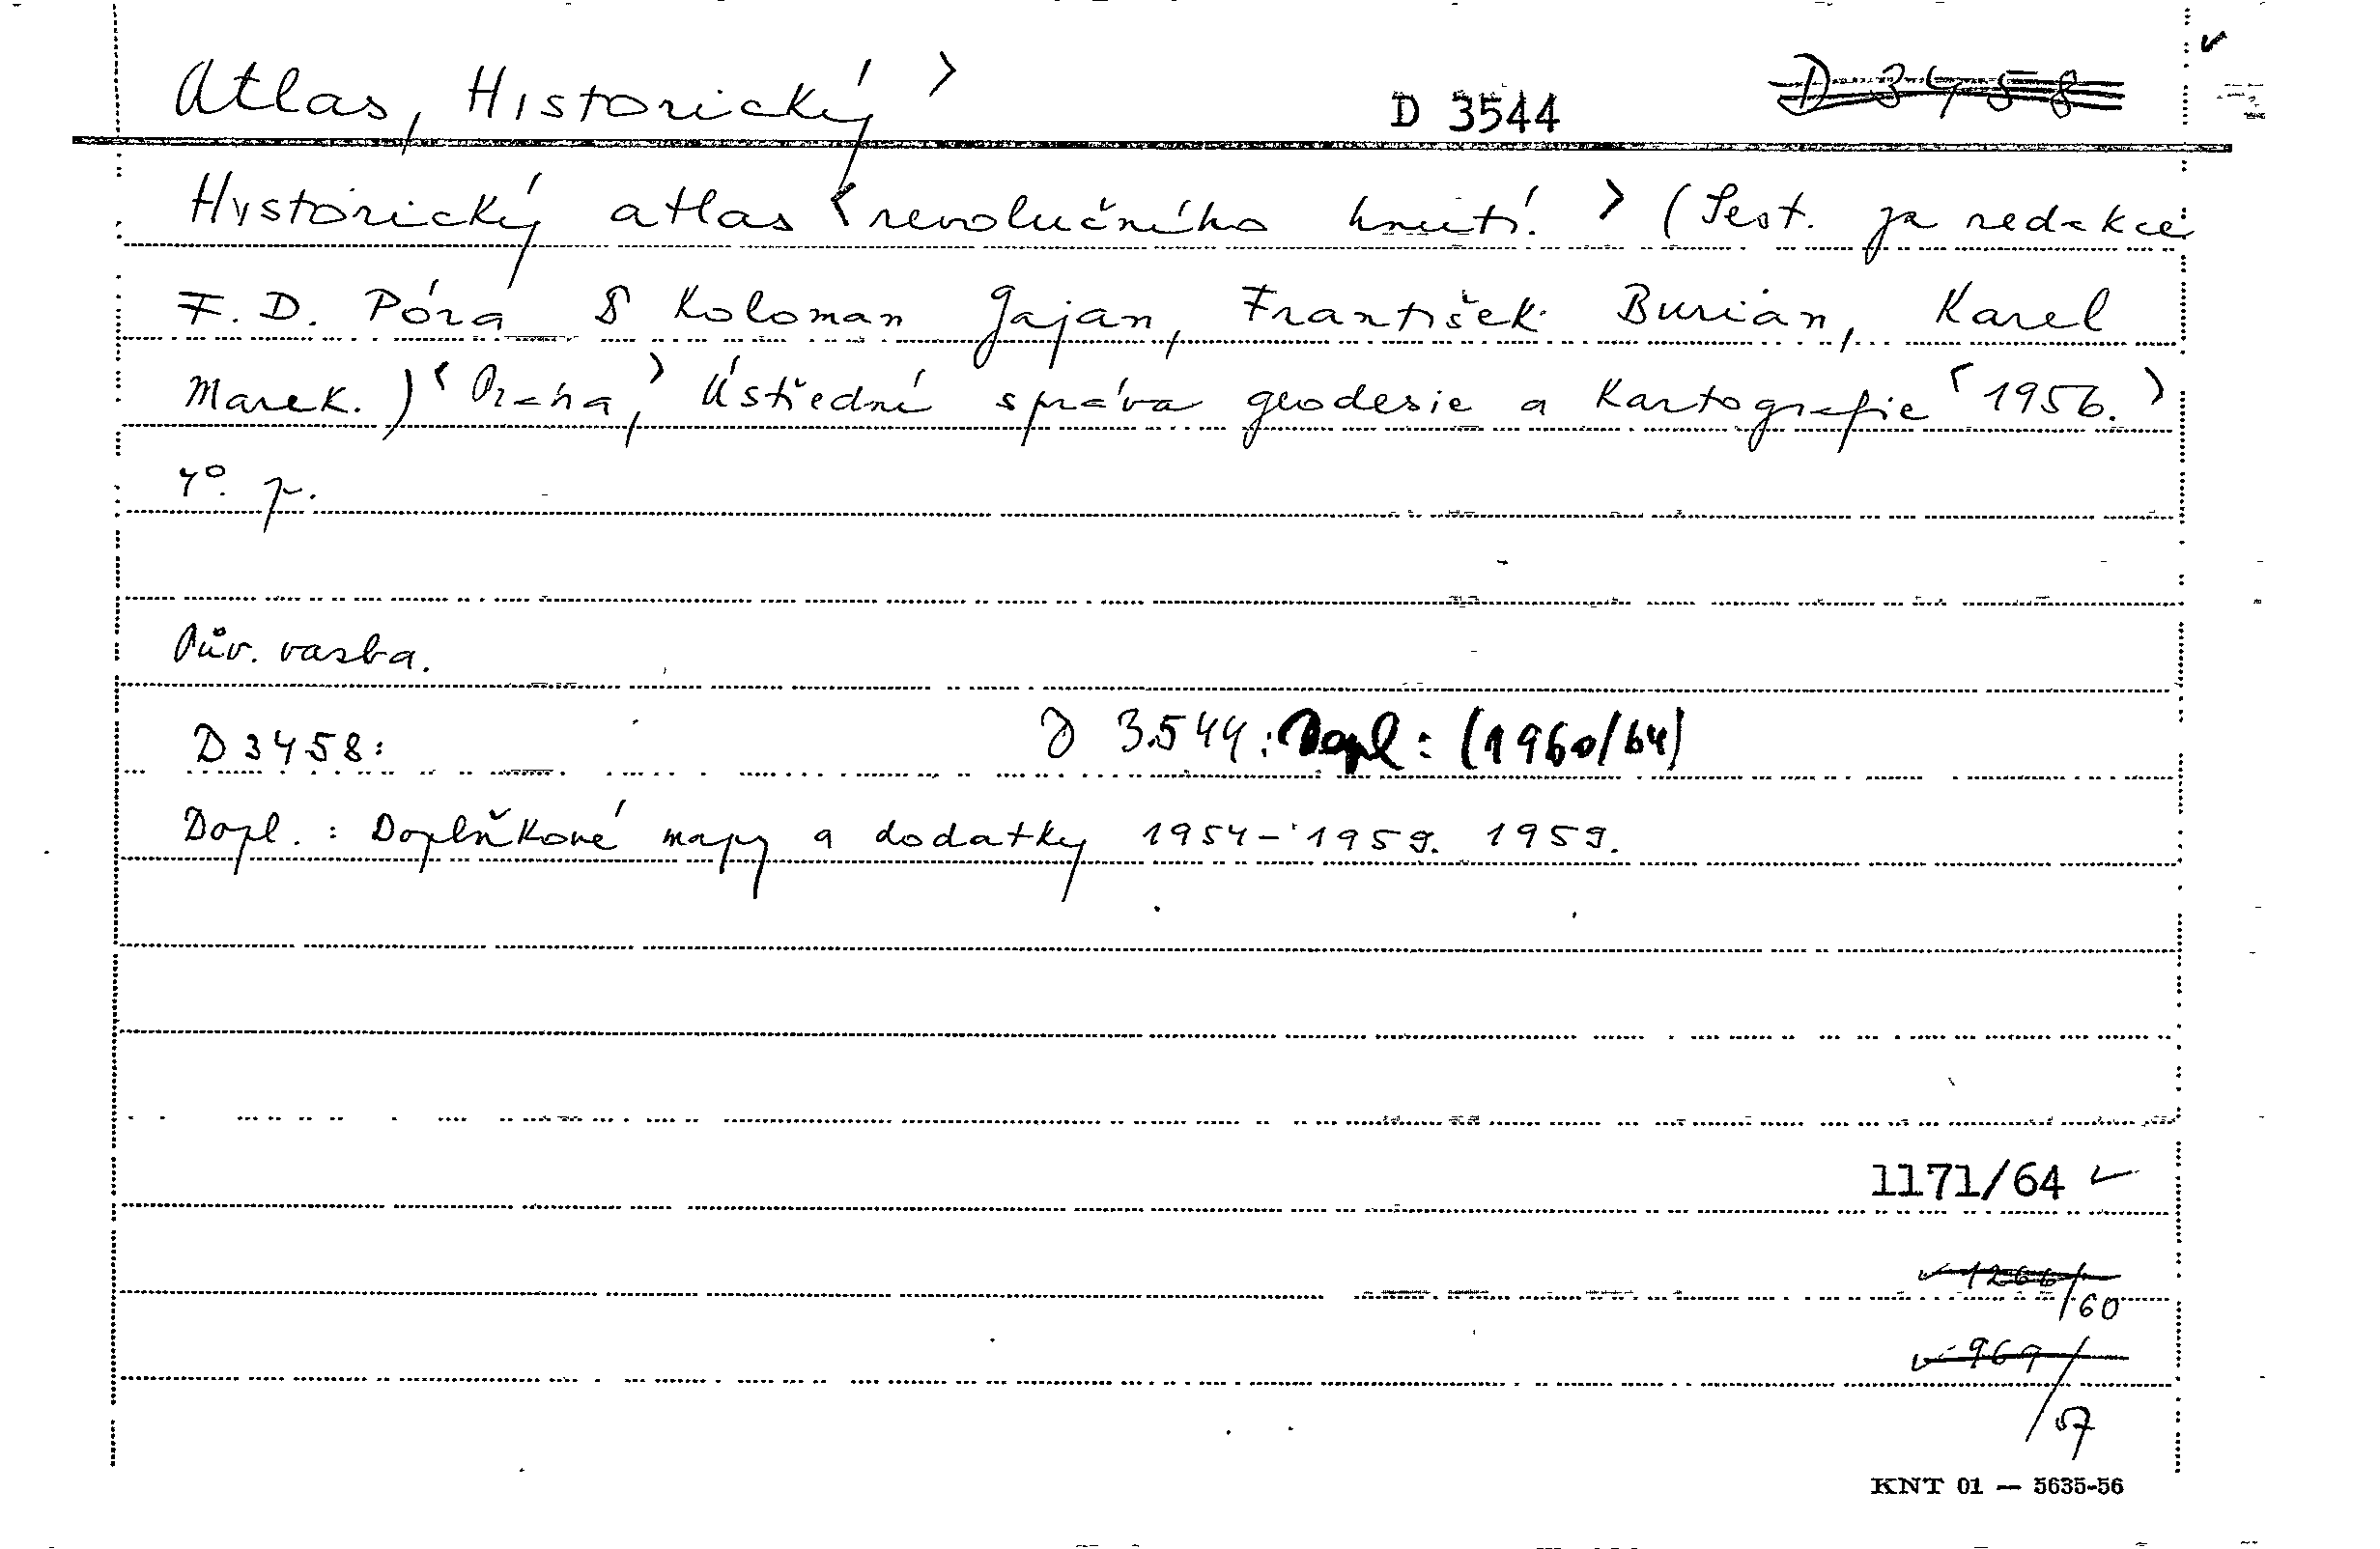 Atlas, Historický >
D 3544
D 3458
Historický atlas < revolučního hnutí. > (Sest. za redakce
F. D. Póra & Koloman Gajan, František Burian, Karel
Marek.) < Praha, > Ústřední správa geodesie a Kartografie < 1956. >
4°. p.
Pův. vazba.
D 3458: D 3544: Dopl: (1960/64)
Dopl. : Doplňkové mapy a dodatky 1954-1959. 1959.
1171/64 ✓
✓ 1266/60
✓ 969/57
KNT 01 — 5635-56